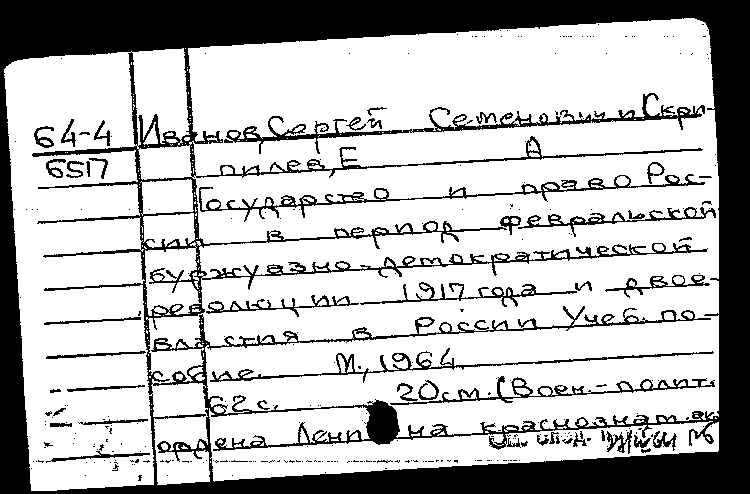 64-4 Иванов, Сергей Семенович и Скри-
6517 пилев, Е А
Государство и право Рос-
сии в период февральской
буржуазно-демократической
революции 1917 года и двое-
властия в России Учеб. по-
собие. М., 1964.
62 с. 20 см. (Воен.-полит.
ордена Ленина краснознам. ак